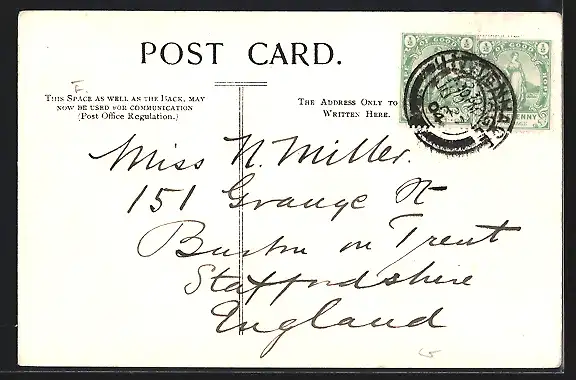 POST CARD.
THIS SPACE AS WELL AS THE BACK, MAY
NOW BE USED FOR COMMUNICATION
(Post Office Regulation.)
THE ADDRESS ONLY TO
WRITTEN HERE.
Miss N. Miller.
151 Grange St
Burton on Trent
Staffordshire
England